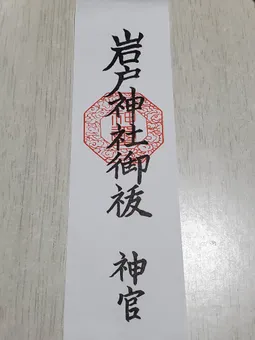 岩戸神社御祓 神官